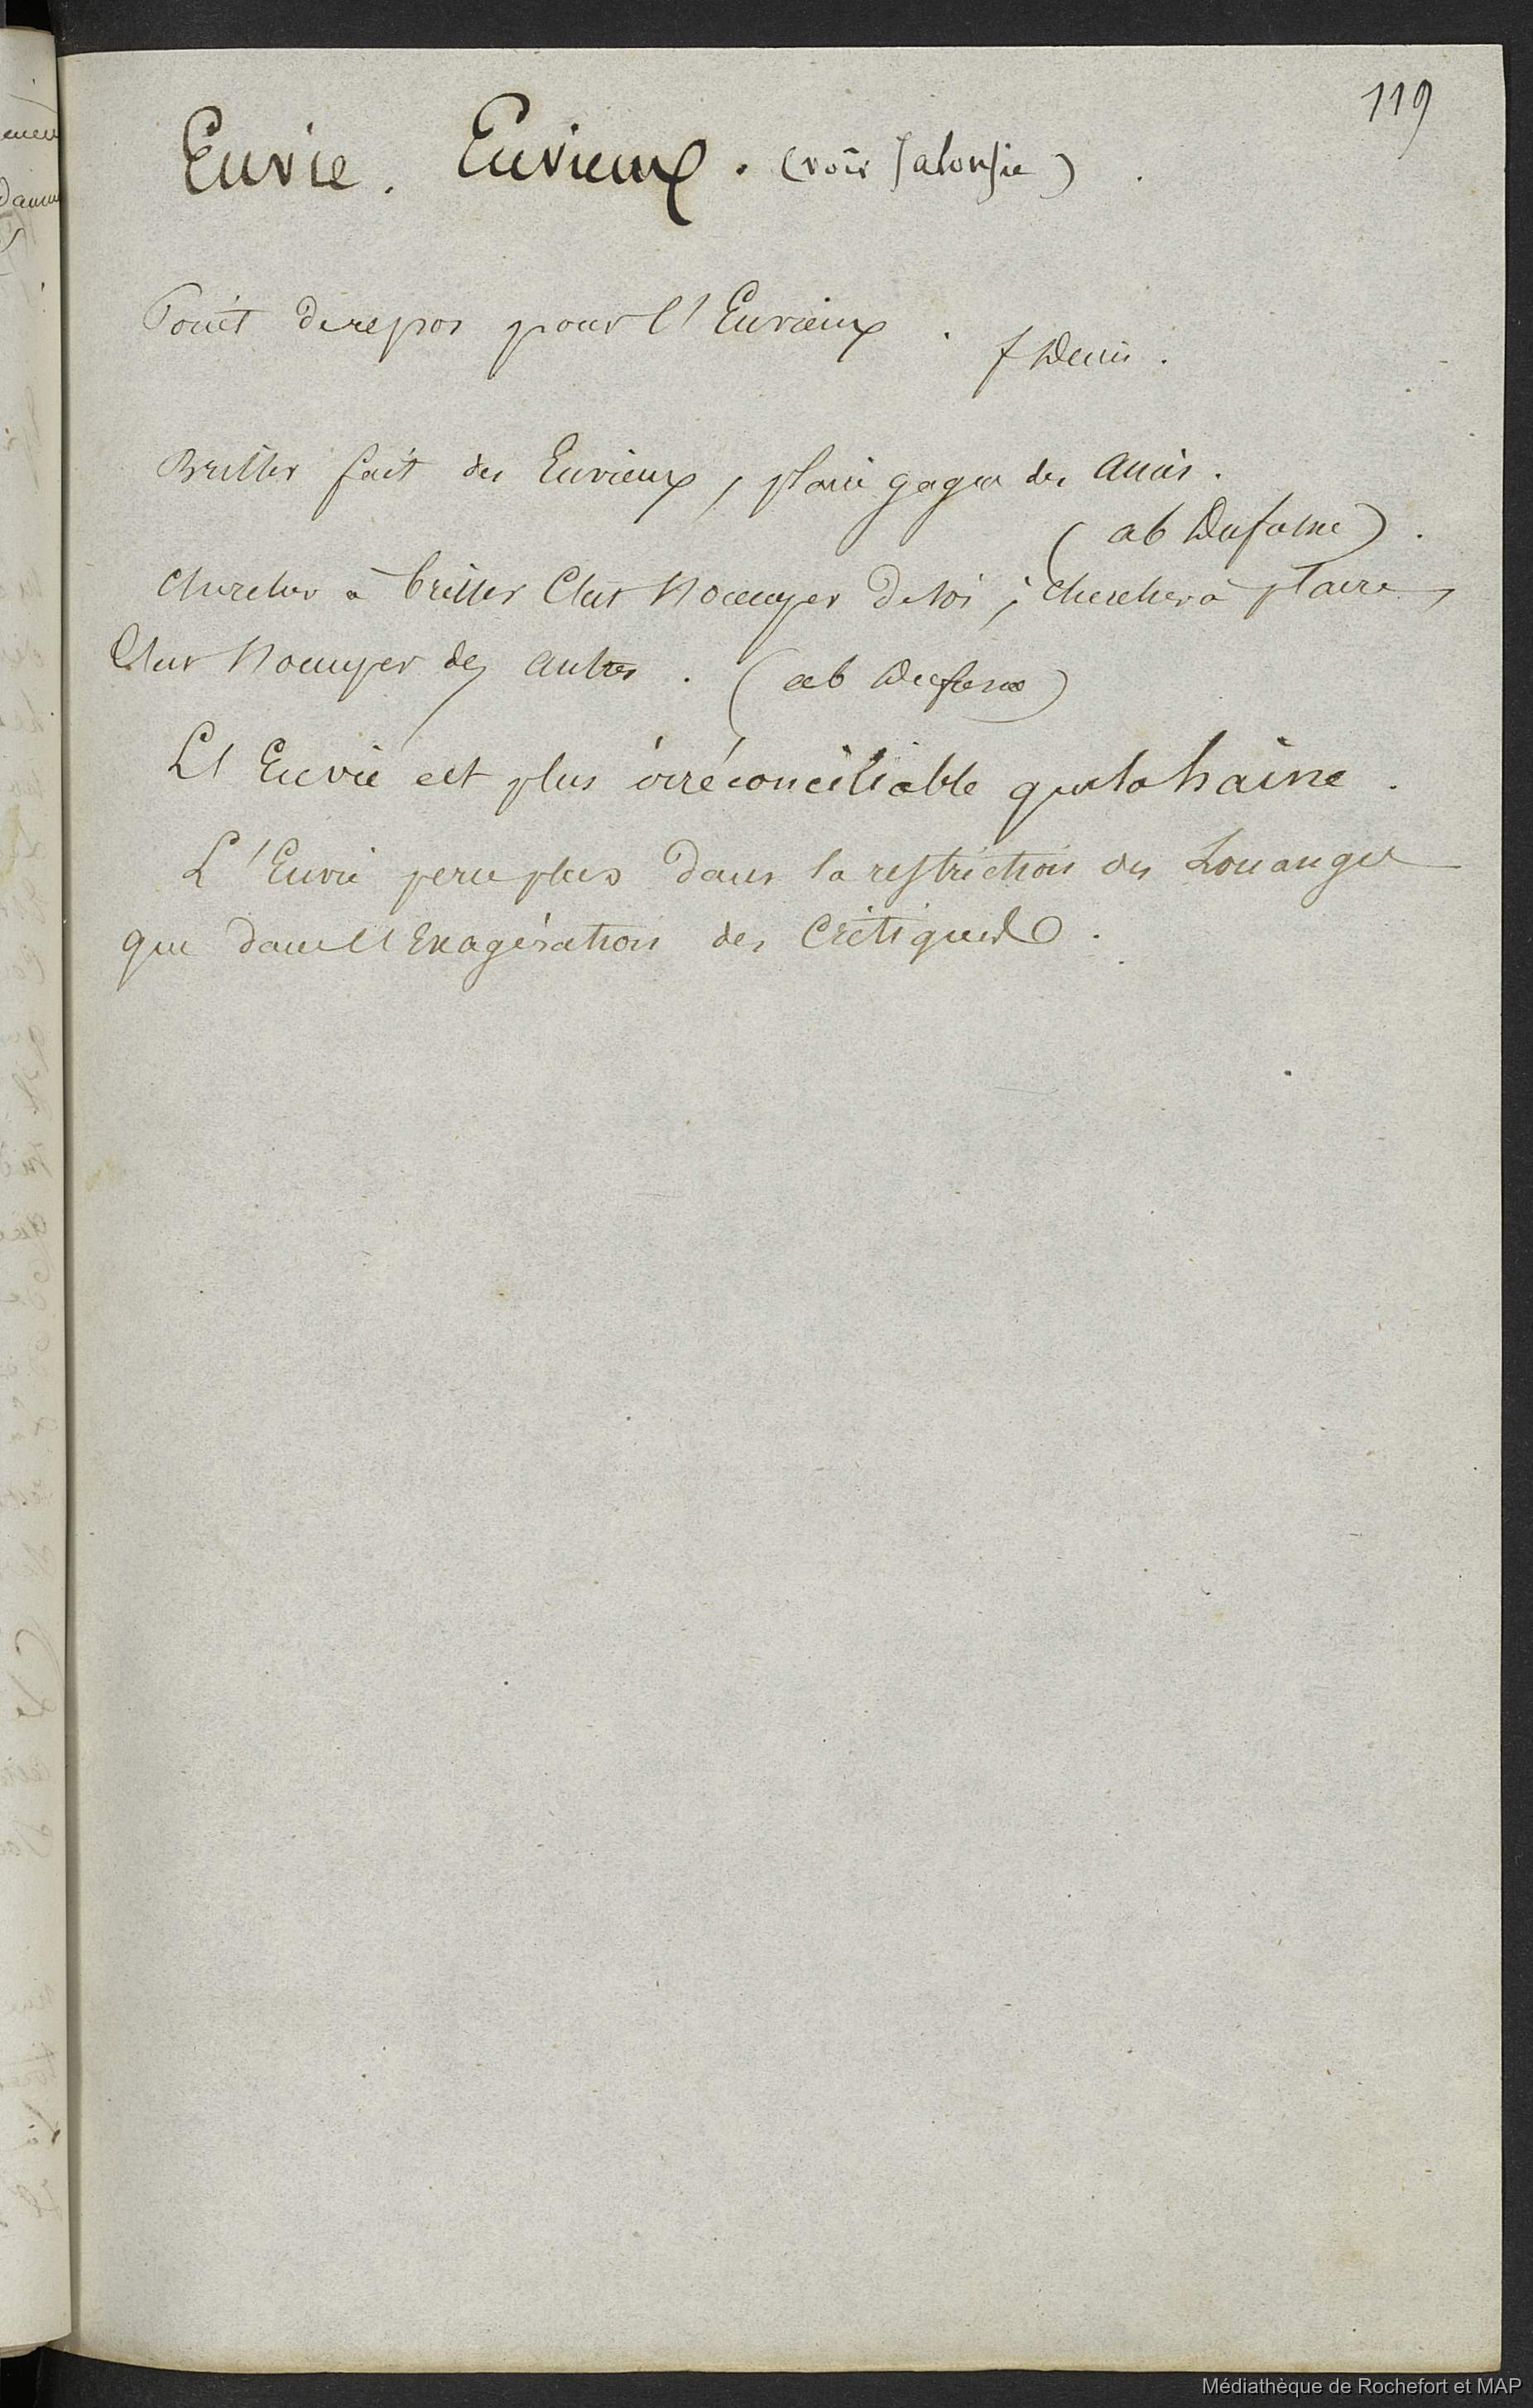 119
Envie. Envieux. (voir Jalousie)
Point de repos pour l'Envieux.
f Denis.
Briller fait des Envieux, plaire gagne des amis.
(ab Dufasne).
Chercher à briller C'est s'occuper de soi; Chercher à plaire,
C'est s'occuper des autres. (ab Dufasne)
L'Envie est plus irréconciliable que la haine.
L'Envie perce plus dans la restriction des Louanges
que dans l'Exagération des Critiques.
Médiathèque de Rochefort et MAP